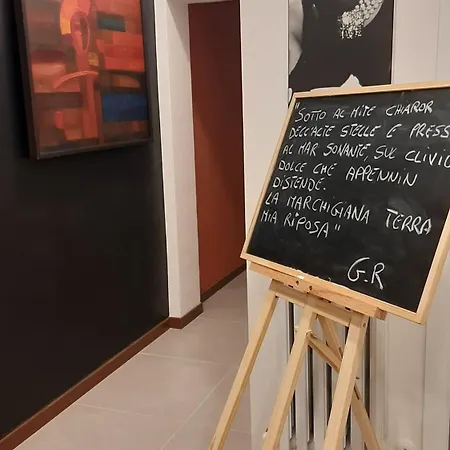 "SOTTO AL MITE CHIAROR
DELL'ALTE STELLE E PRESS
AL MAR SONANTE, SUL CLIVIO
DOLCE CHE APPENNIN
DISTENDE.
LA MARCHIGIANA TERRA
MIA RIPOSA"
G.R